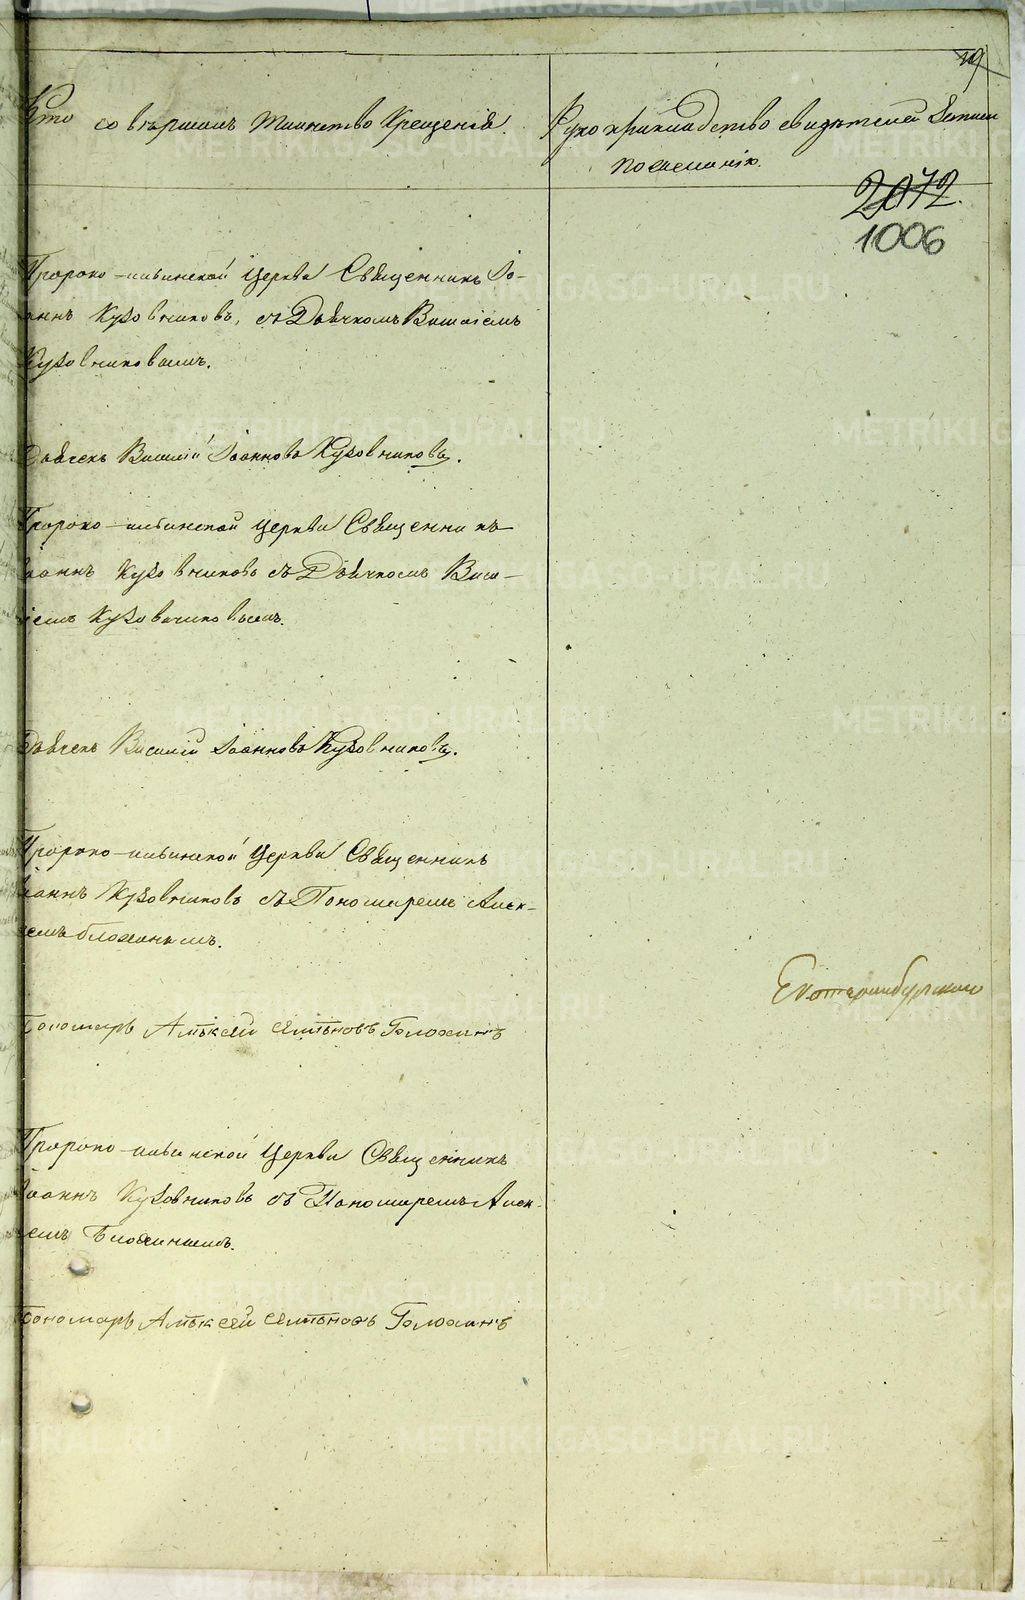 19
Кто совершалъ таинство Крещенія.
Рукоприкладство свидѣтелей записи
по желанію.
2072.
1006
Пророко-ильинской Церкви Священникъ Іо-
аннъ Кузовниковъ, съ Дьячкомъ Василіемъ
Кузовниковымъ.
Дьячекъ Василій Іоанновъ Кузовниковъ.
Пророко-ильинской Церкви Священникъ
Іоаннъ Кузовниковъ съ Дьячкомъ Васи-
ліемъ Кузовниковымъ.
Дьячекъ Василій Іоанновъ Кузовниковъ.
Пророко-ильинской Церкви Священникъ
Іоаннъ Кузовниковъ съ Пономаремъ Алек-
сѣемъ Блохинымъ.
Екатеринбургскаго
Пономарь Алѣксѣй Семѣновъ Блохинъ
Пророко-ильинской Церкви Священникъ
Іоаннъ Кузовниковъ съ Пономаремъ Алек-
сѣемъ Блохинымъ.
Пономарь Алѣксѣй Семѣновъ Блохинъ
METRIKI.GASO-URAL.RU